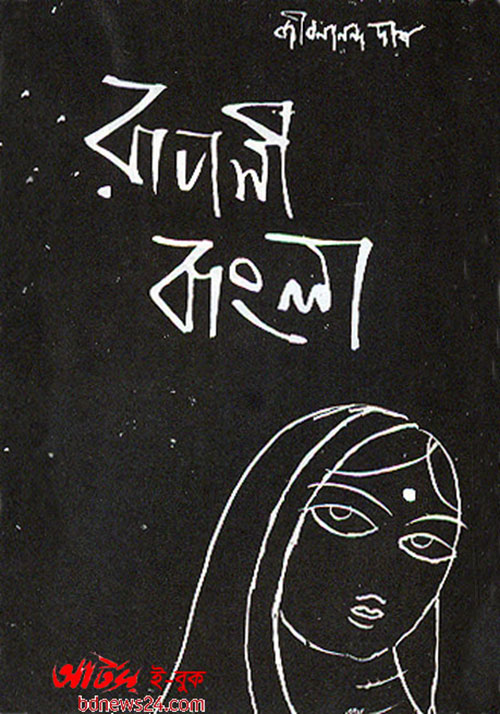 জীবনানন্দ দাশ
রূপসী
বাংলা
আর্টস্ ই-বুক
bdnews24.com